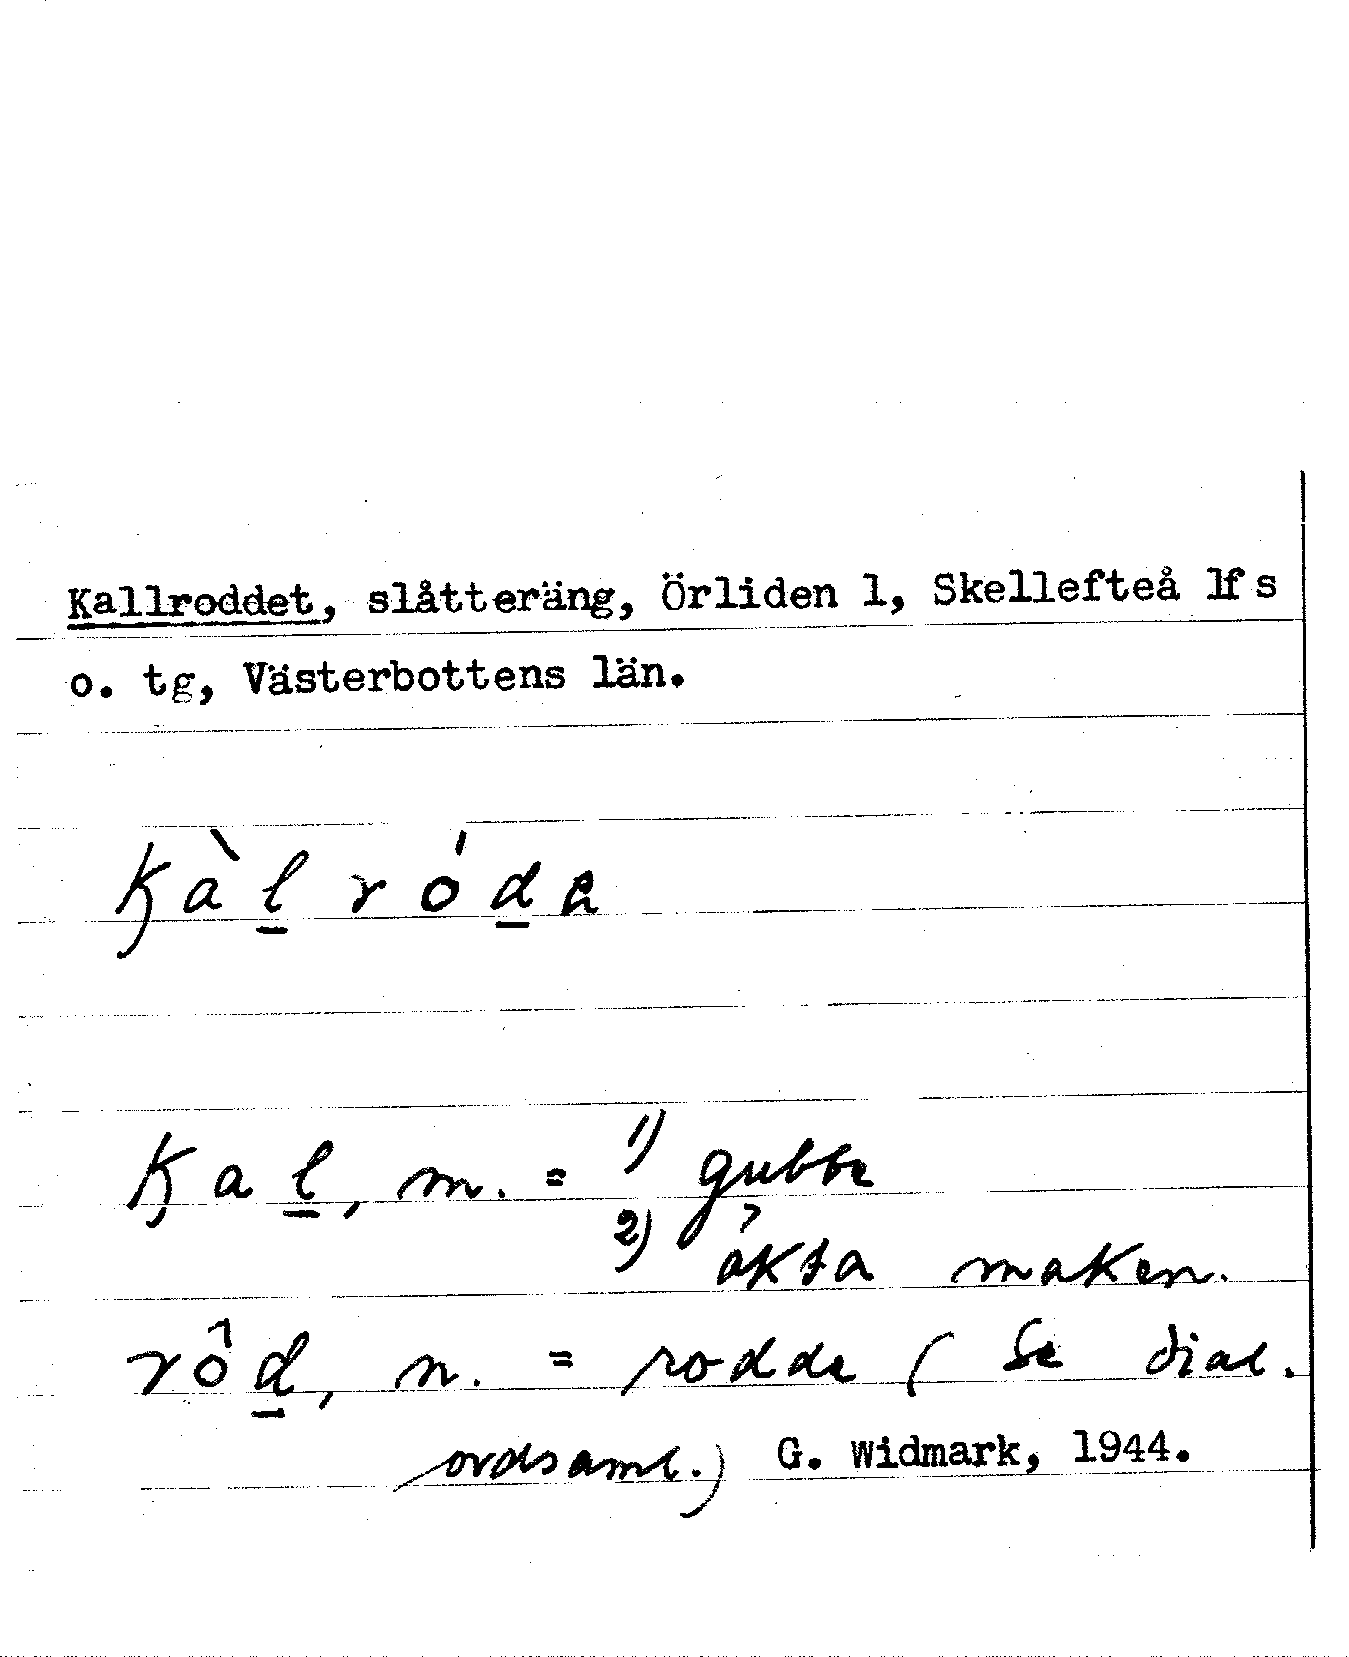 Kallroddet, slåtteräng, Örliden 1, Skellefteå lfs
o. tg, Västerbottens län.
kàl̲ród̲a
kal̲, m. = 1) gubbe
2) äkta maken.
rôd̲, n. = rodde (se dial.
ordsaml.) G. Widmark, 1944.